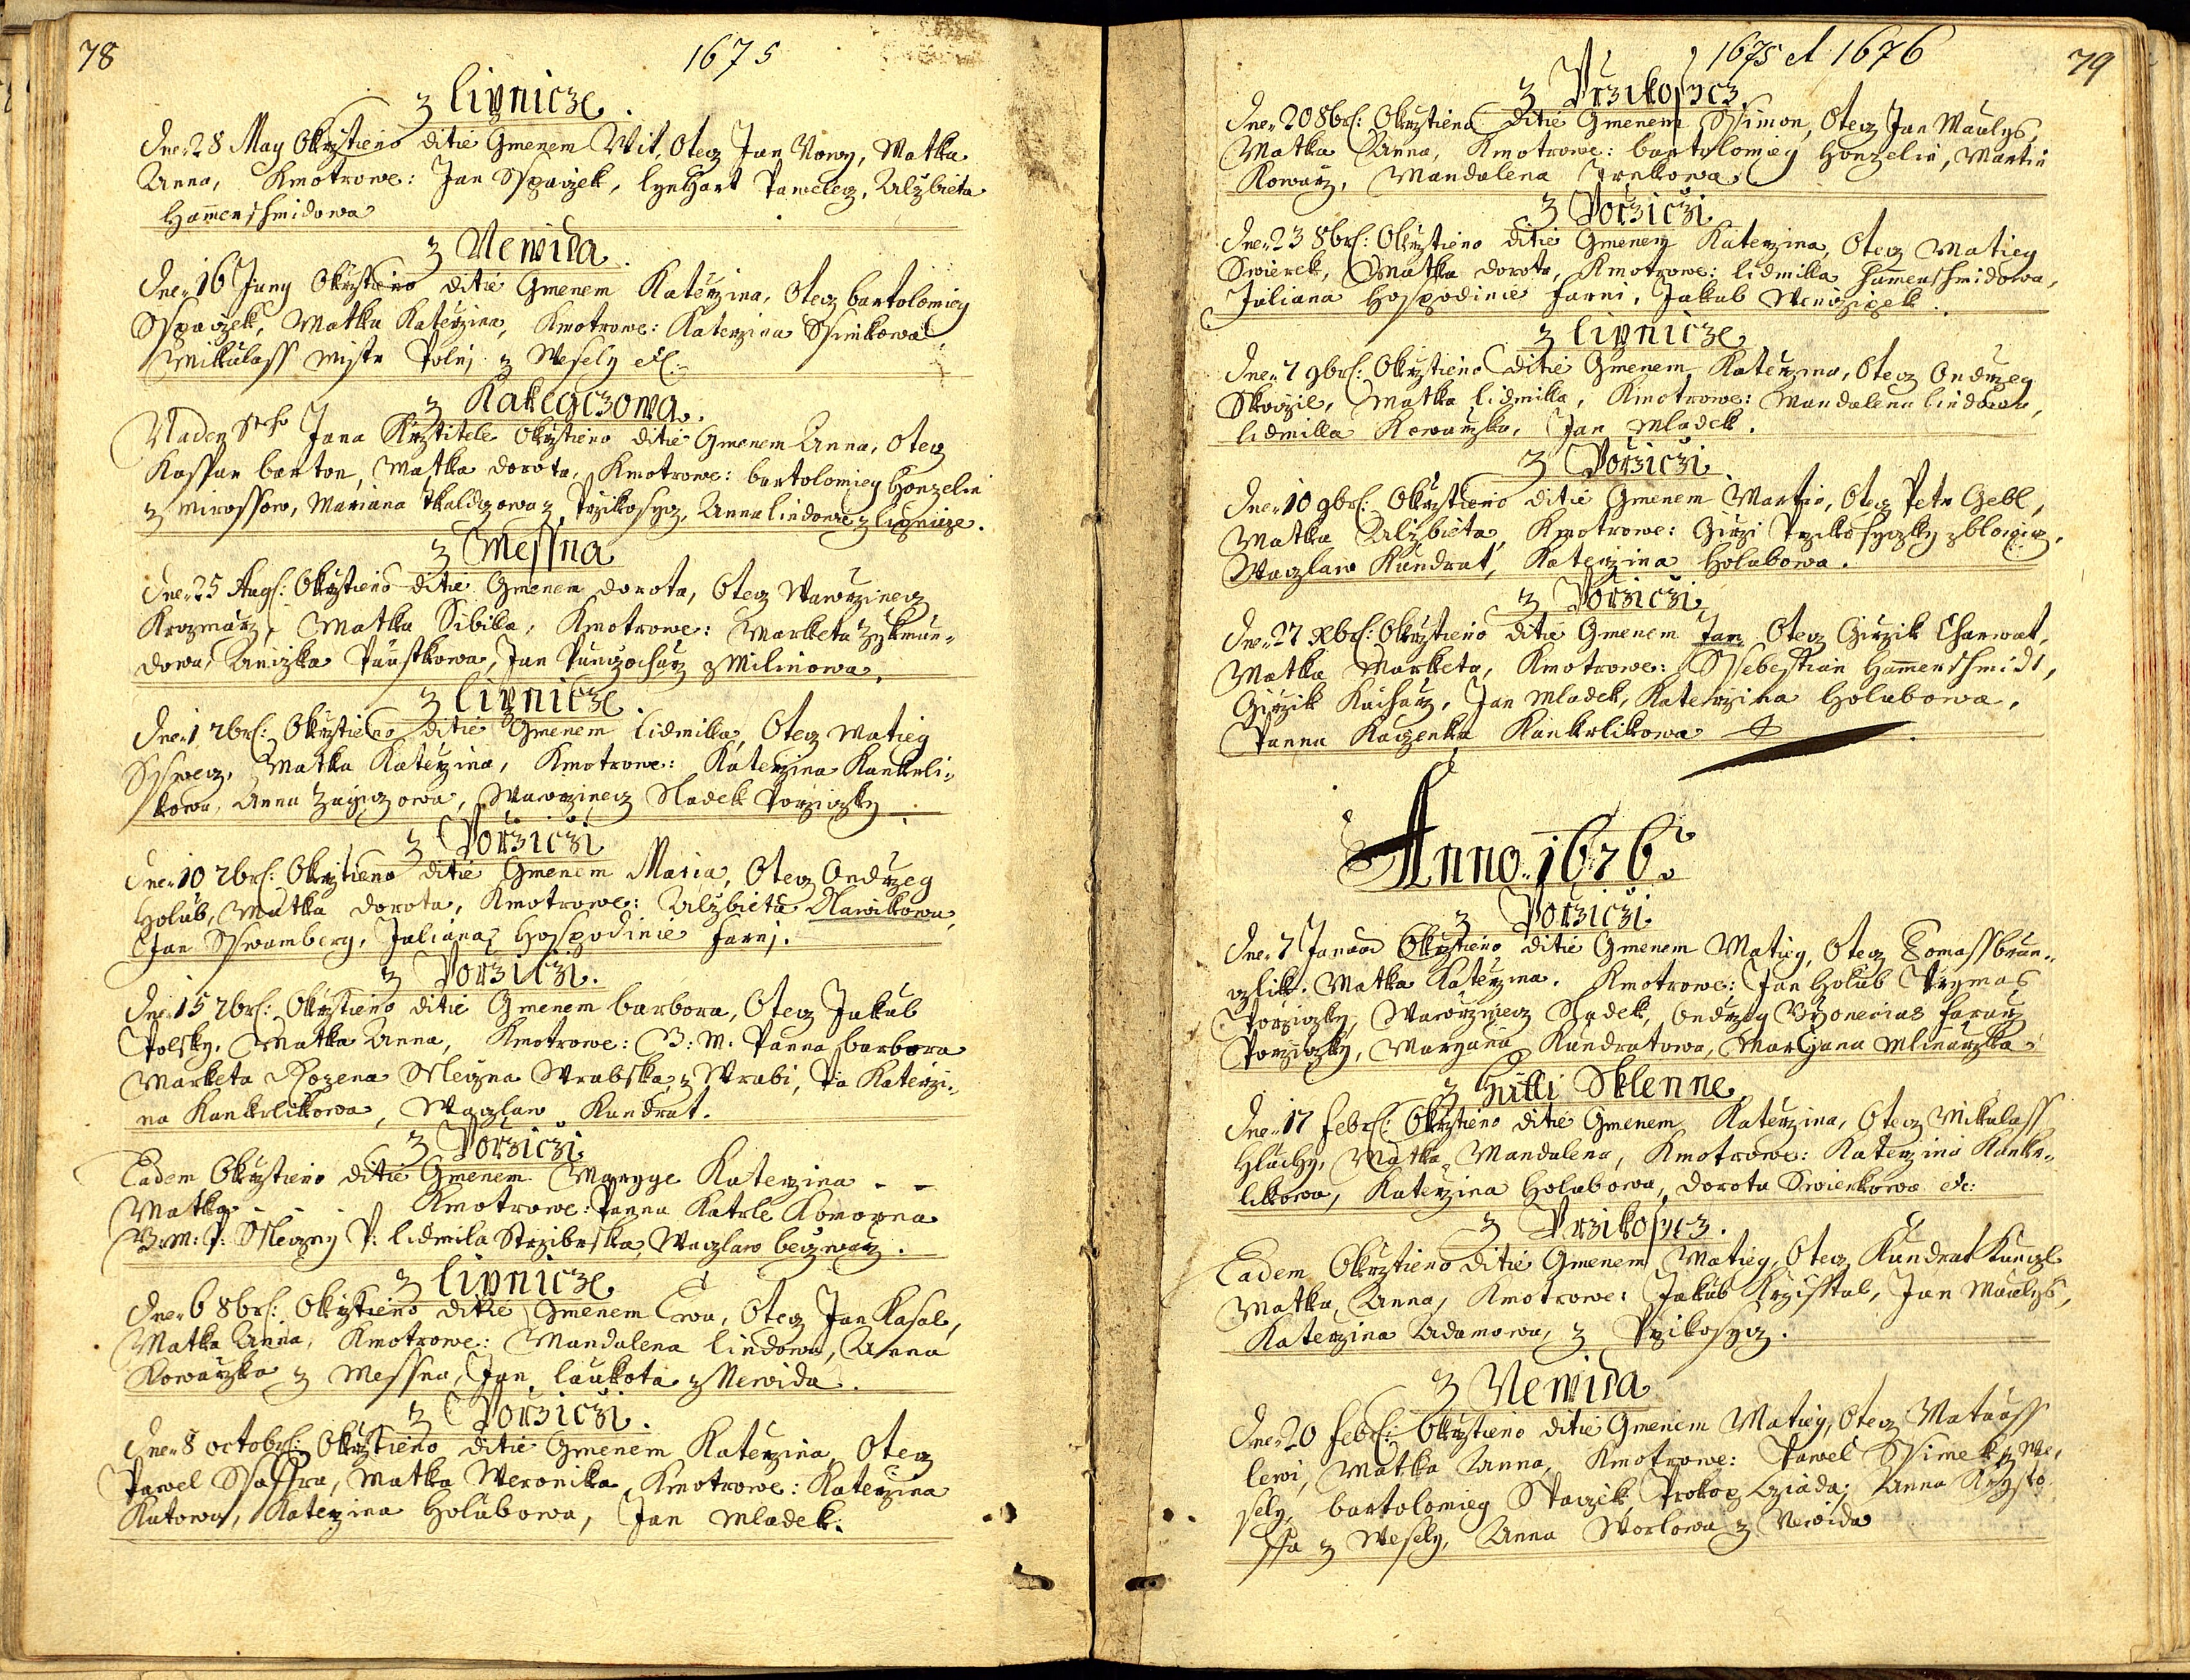 78
1675
z Lipnicze.
Dne 28 May Okrztieno ditie Gmenem Wit, Otecz Jan Nowy, Matka
Anna, Kmotrowe: Jan Sspaczek, Lynhart Pawelecz, Alzbieta
Hamerschmidowa
z Newida.
Dne 16 Juny Okrztieno ditie Gmenem Katerzina, Otecz Bartolomieg
Sspaczek, Matka Katerzina, Kmotrowe: Katerzina Ssimkowa
Mikulass Mistr Polnj z Wesely etc.
z Kakegczowa.
Na den Sto Jana Krztitele Okrztieno ditie Gmenem Anna, Otecz
Kasspar Barton, Matka Dorota, Kmotrowe: Bartolomieg Honzelin
z Mirossow, Mariana Tkalczowa z Przikosycz, Anna Lindowa z Lipnicze.
z Messna
Dne 25 Aug: Okrztieno ditie Gmenem Dorota, Otecz Wawrzinecz
Krczmarz, Matka Sibilla, Kmotrowe: Marketa Zykmun-
dowa, Anizka Paustkowa, Jan Punczocharz z Milinowa.
z Lipnicze.
Dne 1 7br: Okrztieno ditie Gmenem Lidmilla, Otecz Matieg
Sswecz, Matka Katerzina, Kmotrowe: Katerzina Kankrli-
kowa, Anna Zagiczowa, Wawrzinecz Sladek Porziczky
z Porziczi
Dne 10 7br: Okrztieno ditie Gmenem Maria, Otecz Ondrzeg
Holub, Matka Dorota, Kmotrowe: Alzbieta Hawikowa,
Jan Sswamberg, Juliana Hospodinie Farnj.
z Porziczi.
Dne 15 7br: Okrztieno ditie Gmenem Barbora, Otecz Jakub
Polsky, Matka Anna, Kmotrowe: B: M. Panna Barbora
Marketa Rozena Sleczna Wrabska z Wrabi, Pa Katerzi-
na Kankrlikowa, Waczlaw Kundrat.
z Porziczi
Eadem Okrztieno ditie Gmenem Marygge Katerzina - -
Matka - - - Kmotrowe: Panna Katrle Komorna
B: M: P: Sleczny P: Lidmila Strzibrska, Waczlaw Beczwarz.
z Lipnicze
Dne 6 8br: Okrztieno ditie Gmenem Ewa, Otecz Jan Kasal,
Matka Anna, Kmotrowe: Mandalena Lindowa, Anna
Kowarzka z Messna, Jan Laukota z Newida.
z Porziczi.
Dne 8 Octobr: Okrztieno ditie Gmenem Katerzina, Otecz
Pawel Ssaffra, Matka Weronika, Kmotrowe: Katerzina
Kutowa, Katerzina Holubowa, Jan Mladek.
1675 et 1676
79
z Przikosycz.
Dne 20 8br: Okrztieno ditie Gmenem Ssimon, Otecz Jan Maulys,
Matka Anna, Kmotrowe: Bartolomieg Honzelin, Martin
Kowarz, Mandalena
z Porziczi
Dne 23 8br: Okrztieno ditie Gmenem Katerzina, Otecz Matieg
Swierek, Matka Dorota, Kmotrowe: Lidmilla Hamerschmidowa,
Juliana Hospodinie Farni, Jakub
z Lipnicze
Dne 7 9br: Okrztieno ditie Gmenem Katerzina, Otecz Ondrzeg
Skoczil, Matka Lidmilla, Kmotrowe: Mandalena Lindowa,
Lidmilla Kowarzka, Jan Mladek.
z Porziczi
Dne 10 9br: Okrztieno ditie Gmenem Martin, Otecz Petr Gebl,
Matka Alzbieta, Kmotrowe: Girzi Przikosyczky z Blowicz,
Waczlaw Kundrat, Katerzina Holubowa.
z Porziczi
Dne 27 Xbr: Okrztieno ditie Gmenem Jan, Otecz Girzik Charwat,
Matka Marketa, Kmotrowe: Ssebestian Hamerschmidt,
Girzik Kucharz, Jan Mladek, Katerzina Holubowa,
Panna Kaczenka Kankrlikowa
Anno 1676.
z Porziczi
Dne 7 Januar Okrztieno ditie Gmenem Matieg, Otecz Tomass Brun-
czlik, Matka Katerzina. Kmotrowe: Jan Holub Prymas
Porziczky, Wawrzinecz Sladek, Ondrzeg Fararz
Porziczky, Maryana Kundratowa, Maryana Mlinarzka
z Hutti Sklenne
Dne 17 Febr: Okrztieno ditie Gmenem Katerzina, Otecz Mikulass
Hluchy, Matka Mandalena, Kmotrowe: Katerzina Kankr-
likowa, Katerzina Holubowa, Dorota Swierkowa etc:
z Przikosycz.
Eadem Okrztieno ditie Gmenem Matieg, Otecz Kundrat Kunczl
Matka Anna, Kmotrowe: Jakub Krzisstal, Jan Maulys,
Katerzina Adamowa, z Przikosycz.
z Newida
Dne 20 Febr: Okrztieno ditie Gmenem Matieg, Otecz Matauss
Lewi, Matka Anna, Kmotrowe: Pawel Ssimek z We-
sely, Bartolomieg Spaczik, Prokop Cziada, Anna Krzysto-
ffa z Wesely, Anna Worlowa z Newida